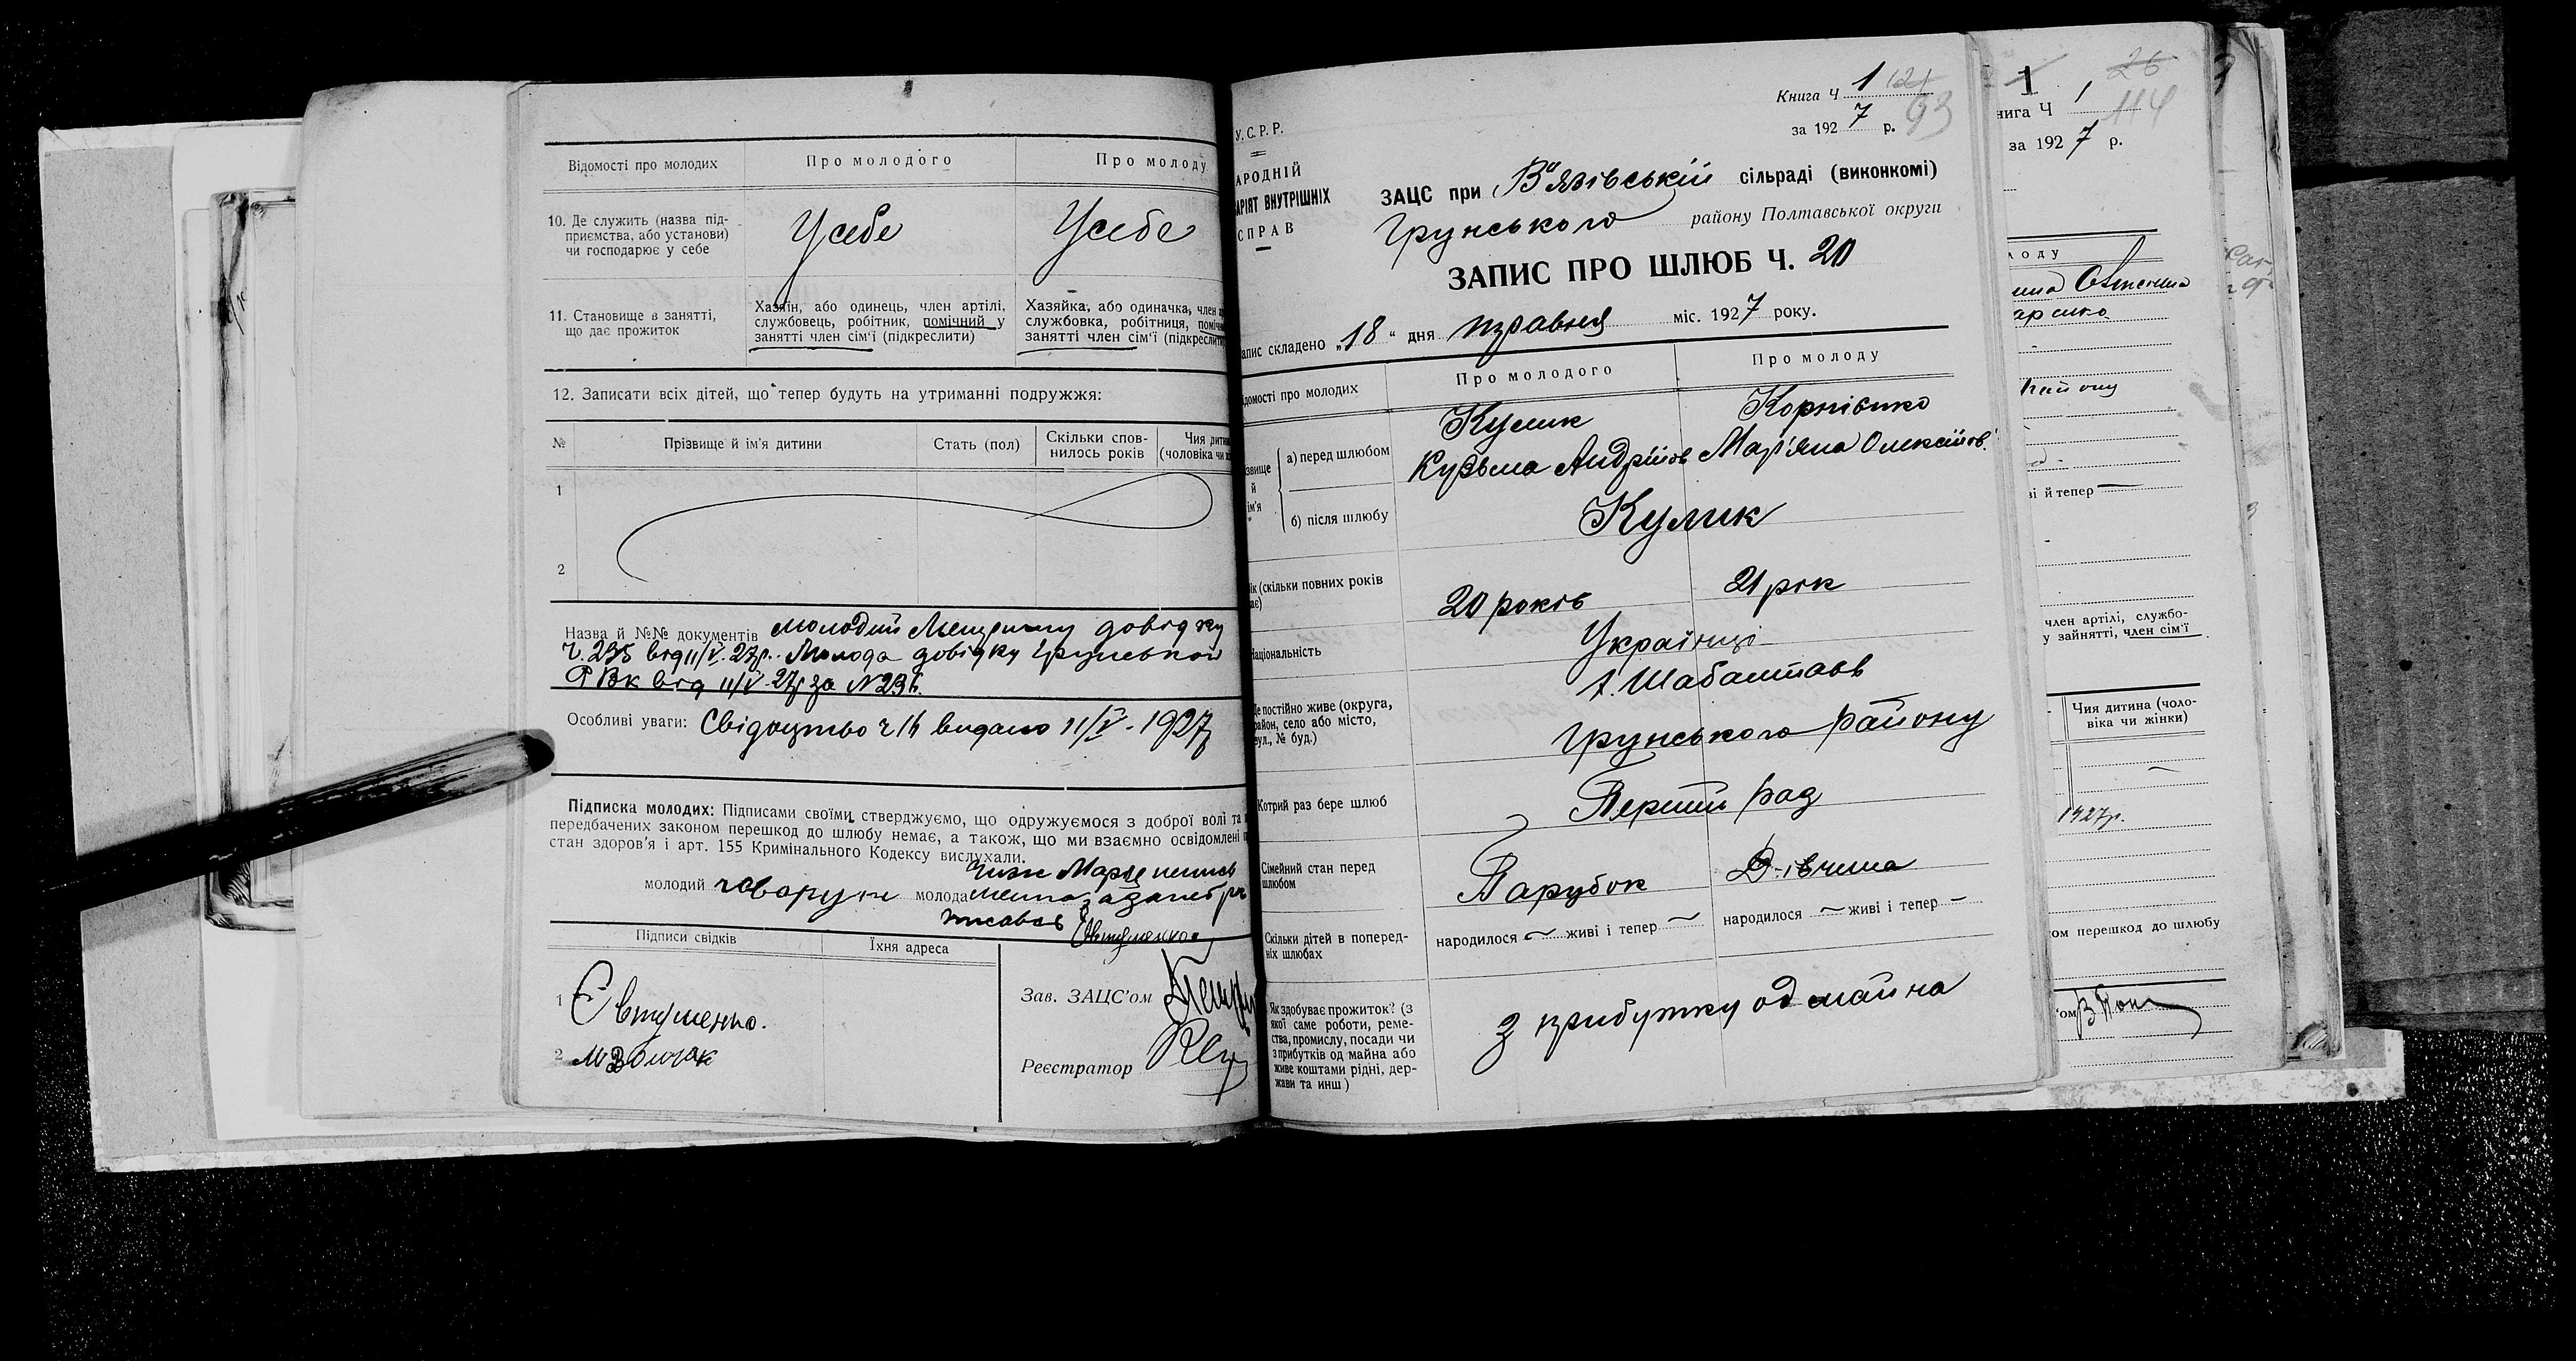 Відомості про молодих
Про молодого
Про молоду
10. Де служить (назва під-
приємства, або установи)
чи господарює у себе
У себе
У себе
11. Становище в занятті,
що дає прожиток
Хазяїн, або одинець, член артілі,
службовець, робітник, помічний у
занятті член сім'ї (підкреслити)
Хазяйка, або одиначка, член
службовка, робітниця,
занятті член сім'ї
12. Записати всіх дітей, що тепер будуть на утриманні подружжя:
№
Прізвище й ім'я дитини
Стать (пол)
Скільки спов-
нилось років
Чия
(чоловіка чи
1
2
Назва й №№ документів молодий довідку
Ч. 235 від 11/V. 27р. Молода довідку Грунської
РВК від 11/V-27р за N 236.
Особливі уваги: Свідоцтво ч 16 видано 11/V - 1927р
Підписка молодих: Підписами своїми стверджуємо, що одружуємося з доброї волі та
передбачених законом перешкод до шлюбу немає, а також, що ми взаємно освідомлені
стан здоров'я і арт. 155 Кримінального Кодексу вислухали.
молодий
молода
Підписи свідків
Їхня адреса
1 Євтушенко.
2
Зав. ЗАЦС'ом
Реєстратор
Книга Ч 1
за 1927 р. 93
У.С.Р.Р.
АРОДНІЙ
АРІЯТ ВНУТРІШНІХ
СПРАВ
ЗАЦС при В'язівській сільраді (виконкомі)
Грунського району Полтавської округи
ЗАПИС ПРО ШЛЮБ Ч. 20
апис складено „18" дня травня міс. 1927 року.
домості про молодих
Про молодого
Про молоду
звище
й
ім'я
а) перед шлюбом
Кулик
Кузьма Андрійов
Корнієнко
Мар'яна Олексійов.
б) після шлюбу
Кулик
ік (скільки повних років
має)
20 років
21 рік
Національність
Українці
Де постійно живе (округа,
район, село або місто,
вул., № буд.)
х. Шабалтаєв
Грунського району
Котрий раз бере шлюб
Перший раз
Сімейний стан перед
шлюбом
Парубок
Дівчина
Скільки дітей в поперед-
ніх шлюбах
народилося — живі і тепер —
народилося — живі і тепер —
Як здобуває прожиток? (з
якої саме роботи, реме-
ства, промислу, посади чи
з прибутків од майна або
живе коштами рідні, дер-
жави та инш)
З прибутку од майна
1
26
нига Ч 1 114
за 1927 р.
лоду
району
і й тепер —
член артілі, службо-
у зайнятті, член сім'ї
Чия дитина (чоло-
віка чи жінки)
1927р.
ом перешкод до шлюбу
'ом